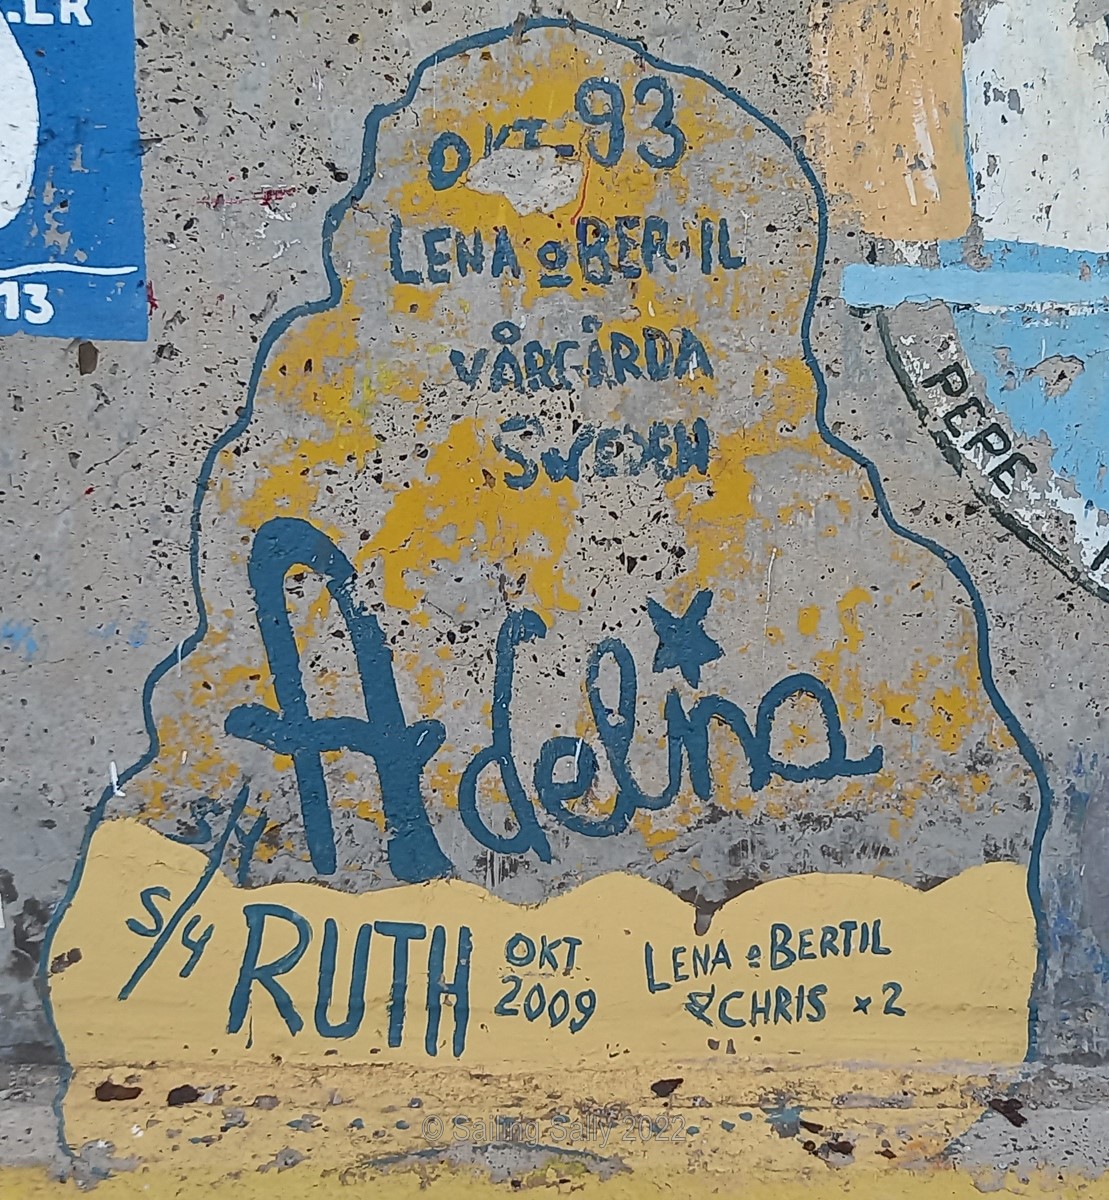 13
OKT-93
LENA o BERTIL
VÅRGÅRDA
SWEDEN
Adelina
S/Y
S/Y RUTH OKT 2009
LENA o BERTIL
& CHRIS x 2
PERE
© Sailing Sally 2022